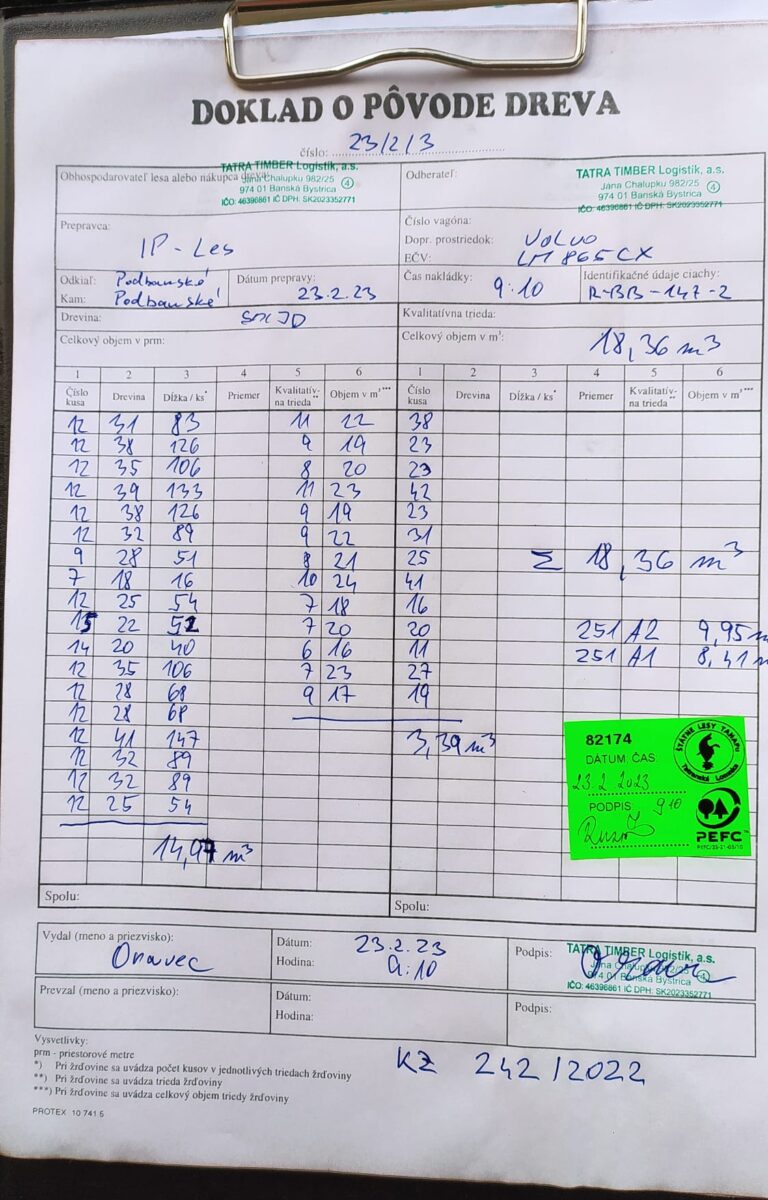 DOKLAD O PÔVODE DREVA
číslo: 23/2/3
Obhospodarovateľ lesa alebo nákupca dreva:
TATRA TIMBER Logistik, a.s.
Jána Chalupku 982/25
974 01 Banská Bystrica 4
IČO: 46396861 IČ DPH: SK2023352771
Odberateľ:
TATRA TIMBER Logistik, a.s.
Jána Chalupku 982/25
974 01 Banská Bystrica 4
IČO: 46396861 IČ DPH: SK2023352771
Prepravca:
IP-Les
Číslo vagóna:
Dopr. prostriedok: Volvo
EČV: LM 865CX
Odkiaľ: Podbanské
Kam: Podbanské
Dátum prepravy:
23.2.23
Čas nakládky:
9:10
Identifikačné údaje ciachy:
R-BB-147-2
Drevina: SM JD
Kvalitatívna trieda:
Celkový objem v prm:
Celkový objem v m³: 18,36 m³
1 2 3 4 5 6 1 2 3 4 5 6
Číslo kusa Drevina Dĺžka / ks* Priemer Kvalitatív-na trieda** Objem v m³*** Číslo kusa Drevina Dĺžka / ks* Priemer Kvalitatív-na trieda** Objem v m³***
12 31 83 11 22 38
12 38 126 9 19 23
12 35 106 8 20 23
12 39 133 11 23 42
12 38 126 9 19 23
12 32 89 9 22 31
9 28 51 8 21 25 Σ 18,36 m³
7 18 16 10 24 41
12 25 54 7 18 16
15 22 52 7 20 20 251 A2 9,95 m
14 20 40 6 16 11 251 A1 8,41 m
12 35 106 7 23 27
12 28 68 9 17 19
12 28 68
12 41 147 3,39 m³
12 32 89
12 32 89
12 25 54
14,97 m³
82174
DÁTUM, ČAS:
23.2 2023
PODPIS: 9 10
ŠTÁTNE LESY TANAPU
Tatranská Lomnica
PEFC™
Spolu:
Spolu:
Vydal (meno a priezvisko):
Onavec
Dátum: 23.2.23
Hodina: 9:10
Podpis:
TATRA TIMBER Logistik, a.s.
Jána Chalupku 982/25
974 01 Banská Bystrica 4
IČO: 46396861 IČ DPH: SK2023352771
Prevzal (meno a priezvisko):
Dátum:
Hodina:
Podpis:
Vysvetlivky:
prm - priestorové metre
*) Pri žrďovine sa uvádza počet kusov v jednotlivých triedach žrďoviny
**) Pri žrďovine sa uvádza trieda žrďoviny
***) Pri žrďovine sa uvádza celkový objem triedy žrďoviny
KZ 242/2022
PROTEX 10 741 5